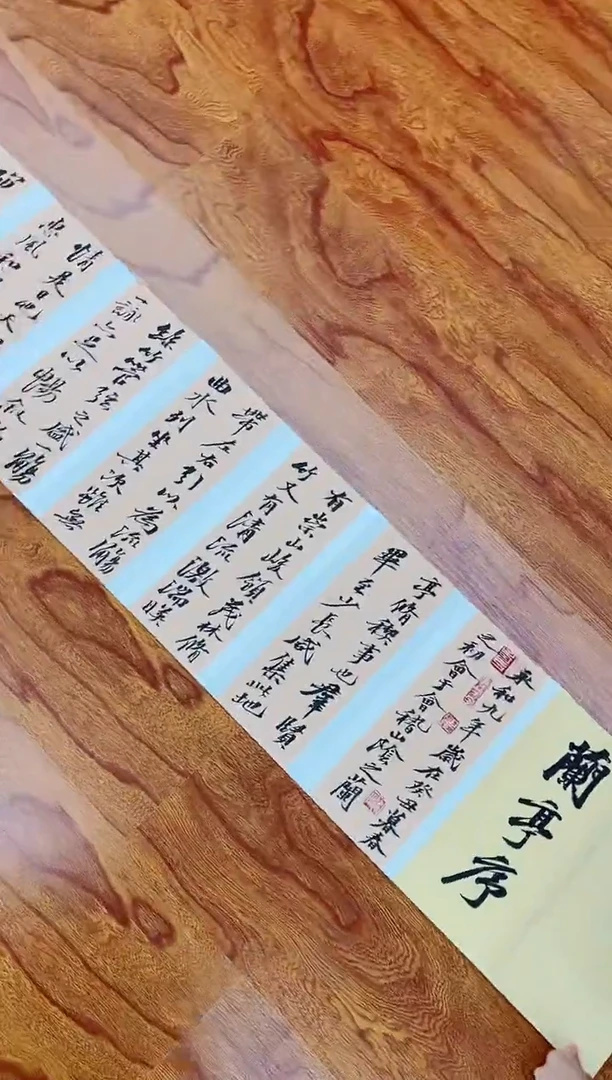 蘭亭序
永和九年歲在癸丑暮春
之初會于會稽山陰之蘭
亭脩稧事也羣賢
畢至少長咸集此地
有崇山峻領茂林脩
竹又有清流激湍暎
帶左右引以為流觴
曲水列坐其次雖無
絲竹管弦之盛一觴
一詠亦足以暢叙
情是日也天
惠風和